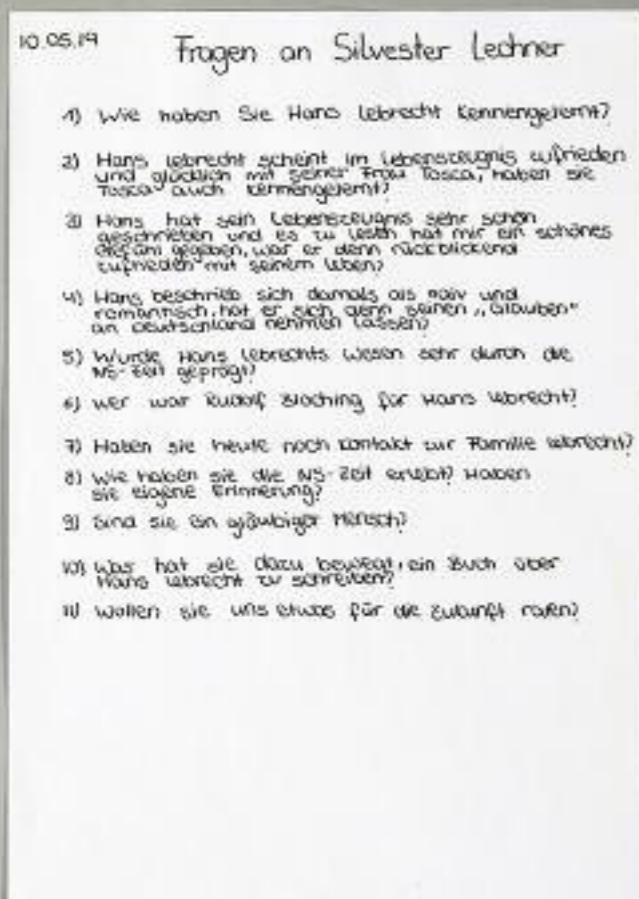 10.05.19
Fragen an Silvester Lechner
1) Wie haben Sie Hans Lebrecht kennengelernt?
2) Hans Lebrecht scheint im Lebenszeugnis zufrieden
und glücklich mit seiner Frau Tosca, haben sie
Tosca auch kennengelernt?
3) Hans hat sein Lebenszeugnis sehr schön
geschrieben und es zu lesen hat mir ein schönes
Gefühl gegeben, war er denn rückblickend
zufrieden mit seinem Leben?
4) Hans beschrieb sich damals als naiv und
romantisch, hat er sich denn seinen „Glauben"
an Deutschland nehmen lassen?
5) Wurde Hans Lebrechts Wesen sehr durch die
NS-Zeit geprägt?
6) Wer war Rudolf Bloching für Hans Lebrecht?
7) Haben sie heute noch Kontakt zur Familie Lebrecht?
8) Wie haben sie die NS-Zeit erlebt? Haben
sie eigene Erinnerung?
9) Sind sie ein gläubiger Mensch?
10) Was hat sie dazu bewegt, ein Buch über
Hans Lebrecht zu schreiben?
11) Wollen sie uns etwas für die Zukunft raten?